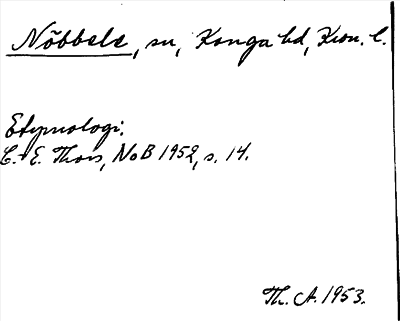 Nöbbele, sn, Konga hd, Kron. l.
Etymologi:
C.-E. Thors, NoB 1952, s. 14.
Th. A. 1953.